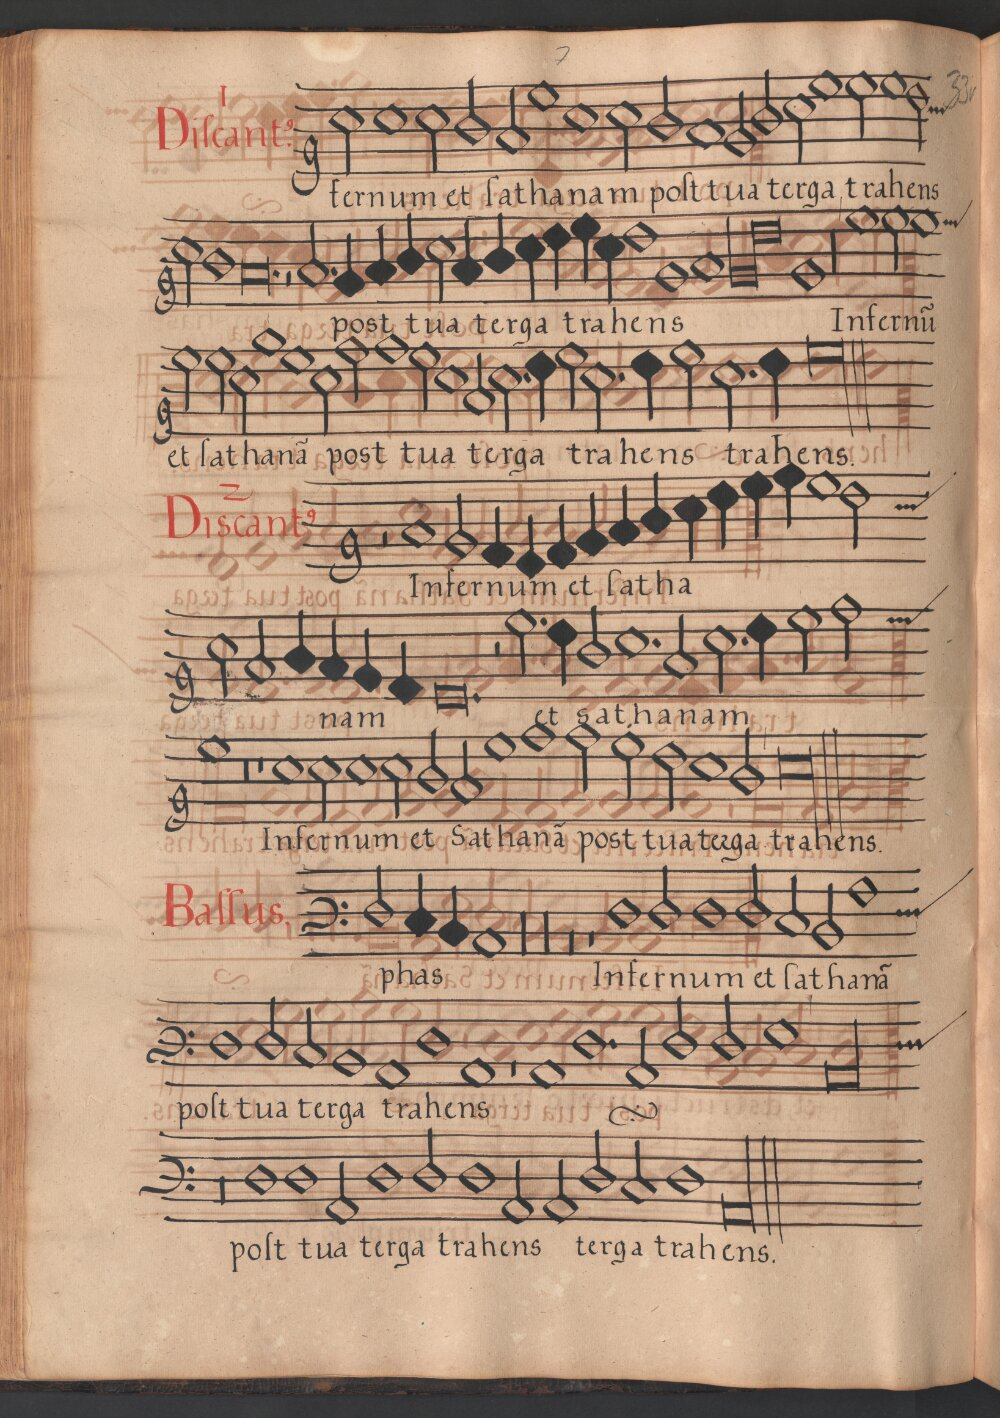 7
33v
1
Discant⁹
fernum et sathanam post tua terga trahens
post tua terga trahens Infernū
et sathanā post tua terga trahens trahens.
2
Discant⁹
Infernum et satha
nam et sathanam
Infernum et Sathanā post tua terga trahens.
Bassus,
phas Infernum et sathanā
post tua terga trahens
post tua terga trahens terga trahens.